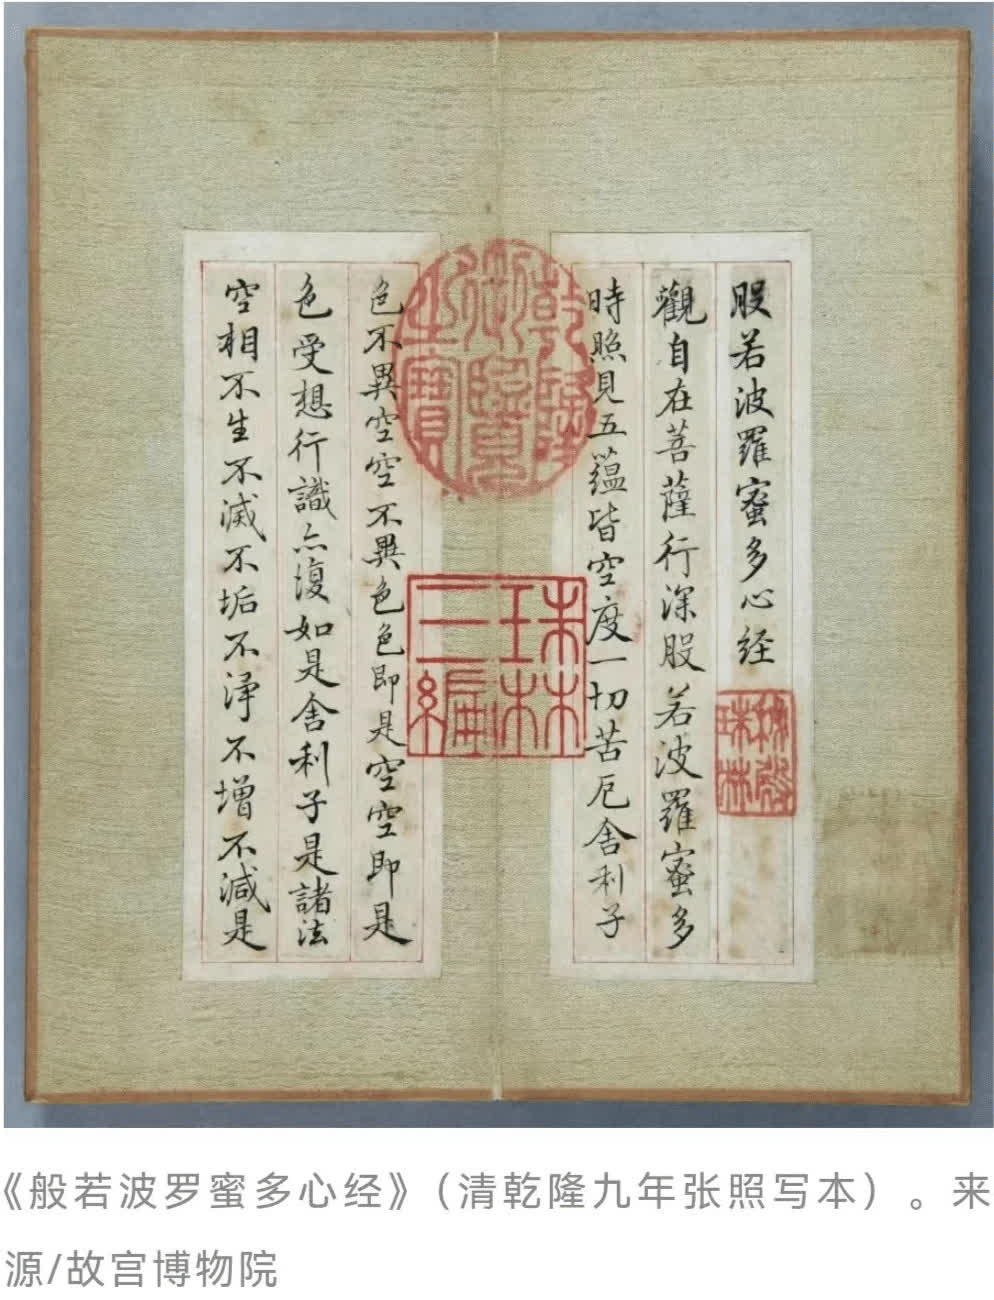 般若波羅蜜多心經
秘殿珠林
觀自在菩薩行深般若波羅蜜多
時照見五蘊皆空度一切苦厄舍利子
乾隆御覽之寶
珠林三編
色不異空空不異色色即是空空即是
色受想行識亦復如是舍利子是諸法
空相不生不滅不垢不淨不增不減是
《般若波罗蜜多心经》（清乾隆九年张照写本）。来
源/故宫博物院